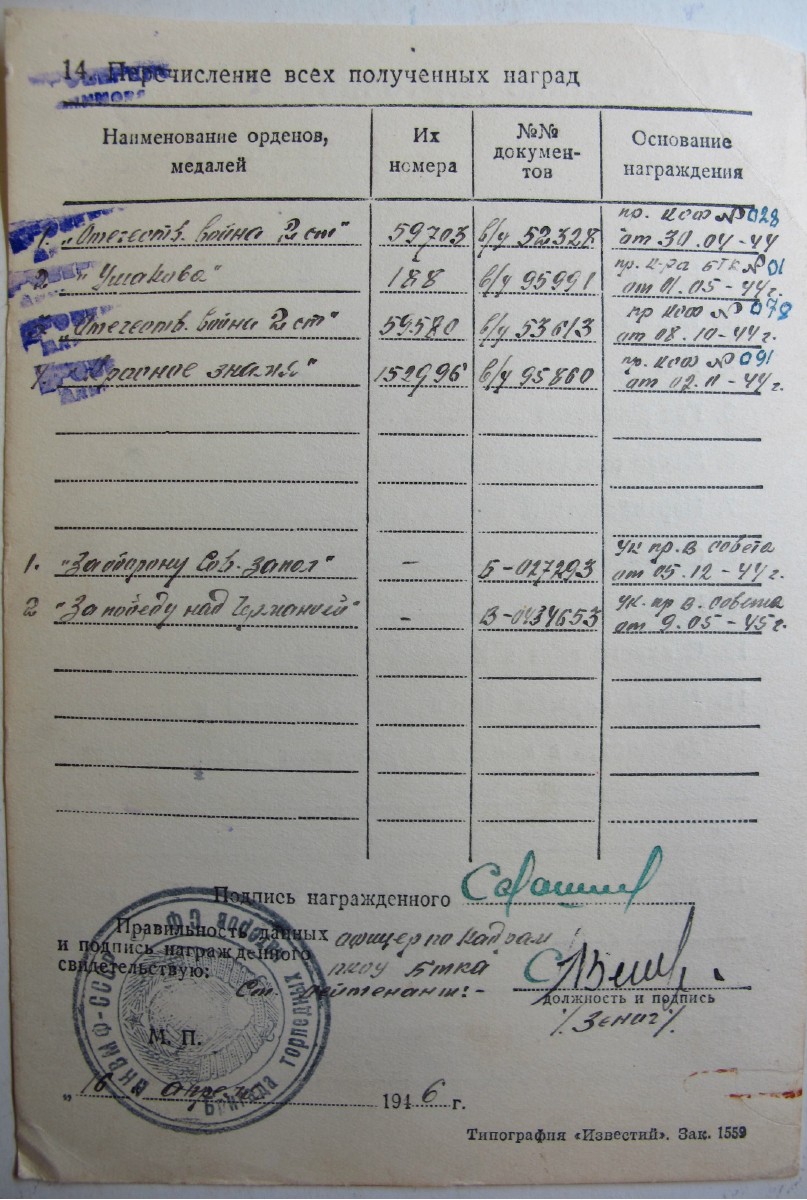 14. Перечисление всех полученных наград
Наименование орденов, медалей
Их номера
№№ докумен-тов
Основание награждения
1. „Отечеств. война 2 ст" 59703 в/у 52328 пр. КСФ № 028 от 30.04-44
2 "Ушакова" 188 в/у 95991 пр. к-ра БТК № 01 от 01.05-44 г.
„Отечеств. война 2 ст" 59580 в/у 53613 пр КСФ № 078 от 08.10-44 г.
"Красное знамя" 152996 в/у 95860 пр. КСФ № 091 от 02.11-44 г.
1. "За оборону Сов. запол" - Б-027293 Ук пр. В совета от 05.12-44 г.
2 "За победу над Германией" - В-0434653 Ук. пр В. совета от 9.05-45 г.
Подпись награжденного
Правильность данных
и подпись награжденного
свидетельствую:
офицер по кадрам
БТКА
Ст. лейтенант:-
должность и подпись
М. П.
НКВМФ-СССР
Бригада торпедных катеров СФ
„16" апреля 1946 г.
Типография «Известий». Зак. 1559